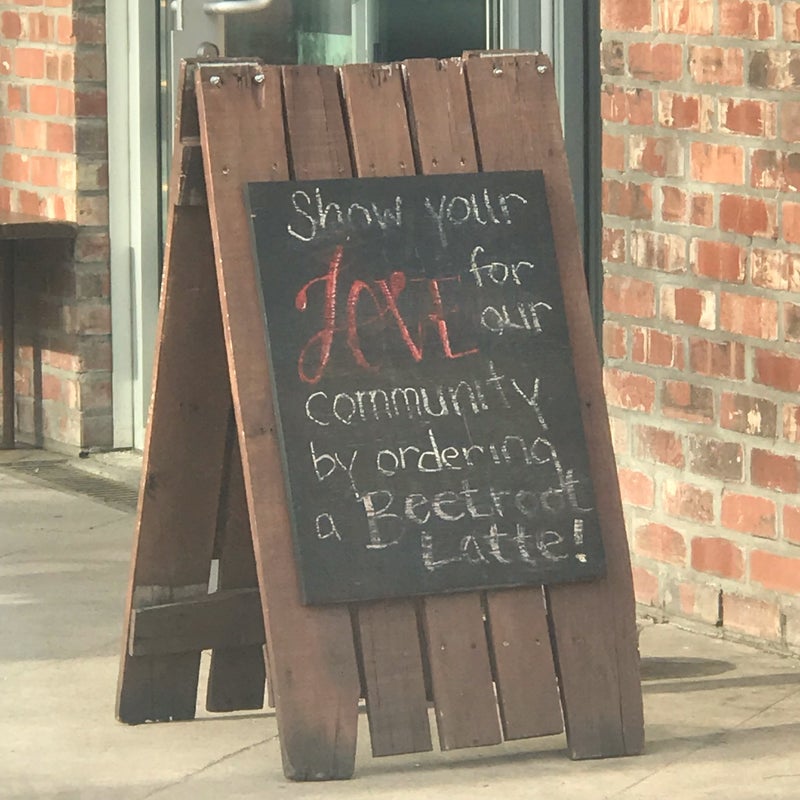 Show your
LOVE for
our
community
by ordering
a Beetroot
Latte!